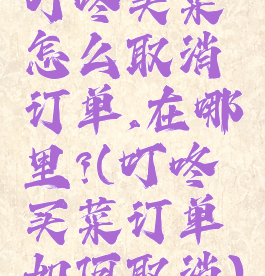 叮咚买菜
怎么取消
订单,在哪
里?(叮咚
买菜订单
如何取消)